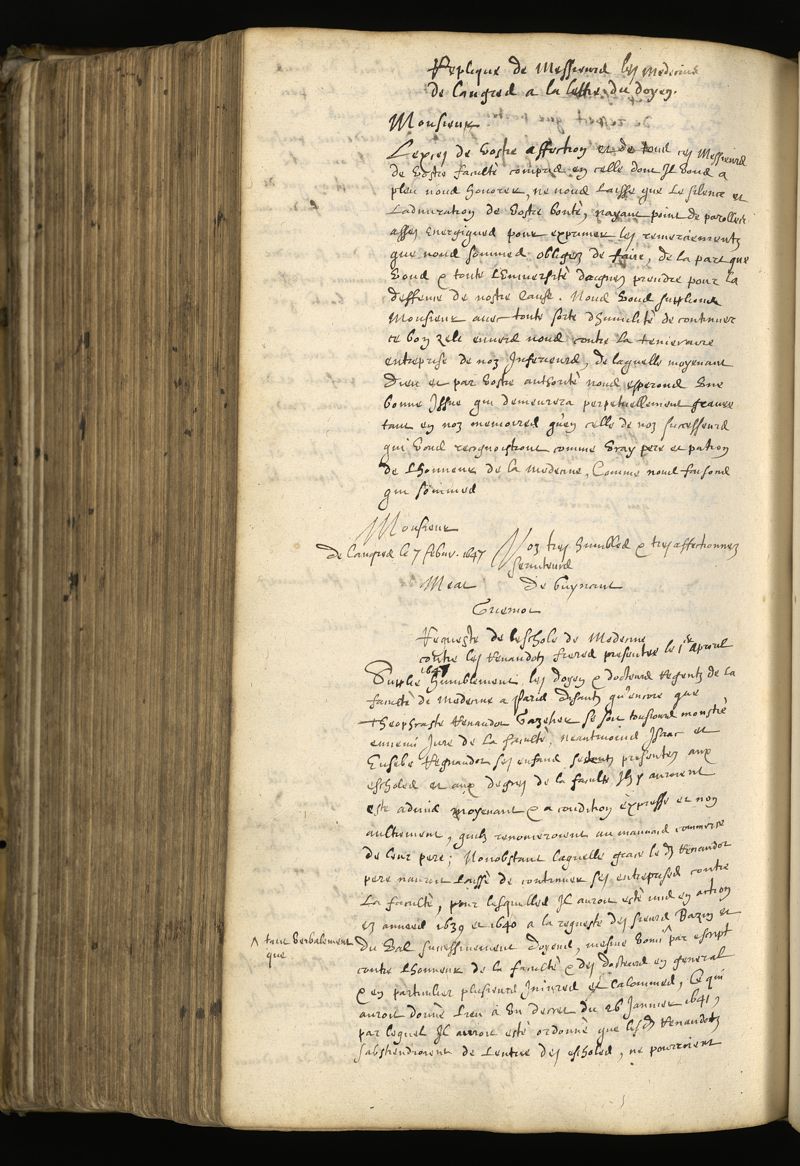 Replique de Messieurs les Medecins
de Langres a la lettre du doyen.
Monsieur
L'exces de vostre affection et de tous ces Messieurs
de vostre faculté compris en celle dont Il vous a
pleu nous honorer, ne nous laisse que le silence et
L'admiration de vostre bonté, nayant point de parolles
asses Energiques pour exprimer les remerciements
que nous sommes obligez de faire, de la part que
vous & toute L'Université daignez prendre pour la
deffense de nostre cause. Nous vous supplions
Monsieur avec toute sorte d'humilité de continuer
ce bon zele envers nous contre la temeraire
entreprise de noz Inferieurs, de laquelle moyenant
Dieu et par vostre authorité nous esperons une
bonne Issue qui demeurera perpetuellement gravee
tant en noz memoires qu'en celle de noz successeurs
qui vous recognoistront comme vray pere et patron
de L'honneur de la medecine, Comme nous faisons
qui sommes
Monsieur
de Langres le 7 febvr. 1647 Voz tres humbles & tres affectionnez
serviteurs
Meat de Guynant
Griemot
Requeste de l'eschole de Medecine
contre les Renaudotz freres presentee le 1er Apvril
1647
Supplie humblement les doyen & docteurs Regents de la
faculté de Medecine a Paris disants qu'encore que
Theophraste Renaudot Gazetier se soit tousiours monstré
ennemi Juré de La faculté, neantmoins Isaac et
Eusebe Regnaudot ses enfans sestants presentez aux
escholes et aux degrez de la faculté Ils y auroient
esté admis moyenant & a condition expresse et non
aultrement, quils renonceroient au mauvais commerce
de leur pere; Nonobstant laquelle grace le dt Renaudot
pere nauroit Laissé de continuer ses entreprises contre
La faculté, pour lesquelles Il auroit esté mis en action
ez annees 1639 et 1640 a la requeste des sieurs Bazin et
du Val successivement doyens, mesme vomi ^ par escript
^ tant verbalement
que
contre L'honneur de la faculté & des docteurs en general
& en particulier plusieurs Iniures et Calomnies, Ce qui
auroit donné Lieu à un decret du 26 Janvier 1641,
par lequel Il auroit esté ordonné que lesdts Renaudotz
s'abstiendroient de L'entree des escholes, ne pourroient